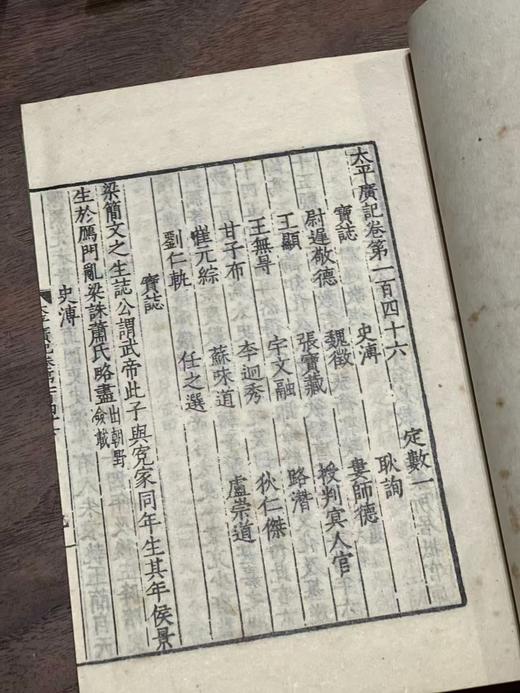 太平廣記卷第一百四十六
定數一
寶誌 史溥 耿詢
尉遲敬德 魏徵 婁師德
王顯 張寶藏 授判冥人官
王無㝵 宇文融 路潛
甘子布 李迥秀 狄仁傑
崔元綜 蘇味道 盧崇道
劉仁軌 任之選
寶誌
梁簡文之生誌公謂武帝此子與冤家同年生其年侯景
生於鴈門亂梁誅蕭氏略盡出朝野僉載
史溥